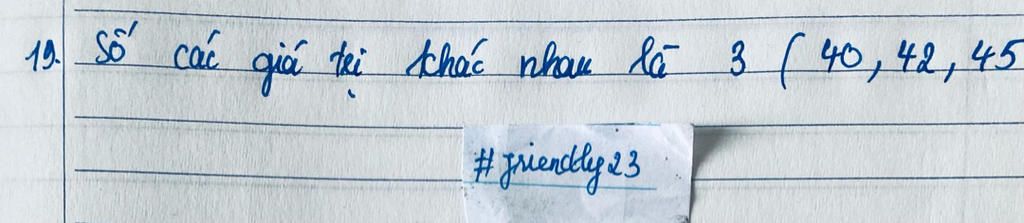 19. Số các giá trị khác nhau là 3 ( 40, 42, 45
# friendly23